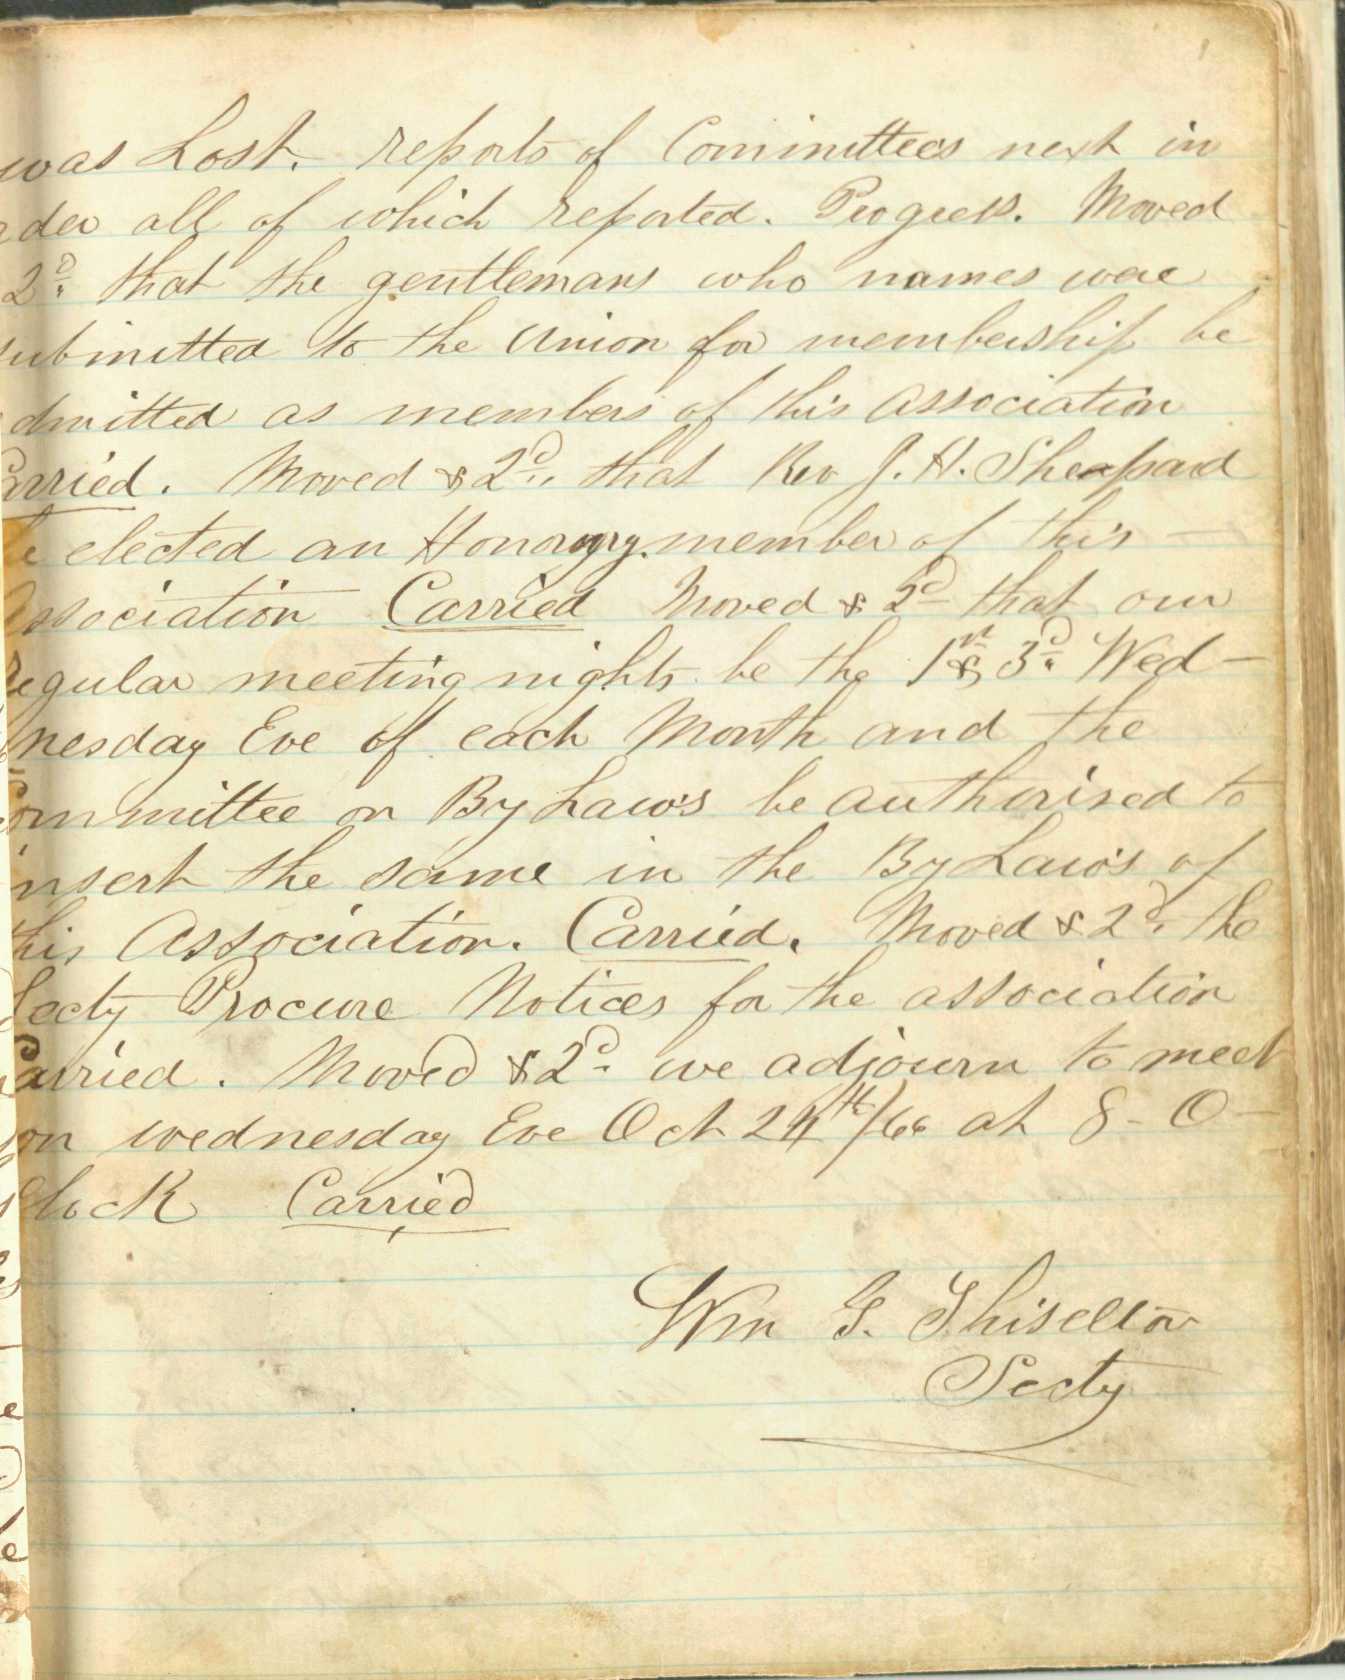 was Lost. reports of Committees next in
rder all of which reported. Progress. Moved
2d. that the gentlemans who names were
submitted to the Union for membership be
dmitted as members of this Association
Carried. Moved & 2d. that Rev J. H. Sheapard
e elected an Honorary member of this —
Association Carried Moved & 2d that our
regular meeting nights be the 1st & 3d. Wed-
nesday Eve of each Month and the
Committee on By Laws be authorised to
insert the same in the By Laws of
this Association. Carried. Moved & 2d. the
Secty Procure Notices for the association
Carried. Moved & 2d. we adjourn to meet
on wednesday Eve Oct 24th/66 at 8- O-
Clock Carried
Wm G. Thiselton
Secty